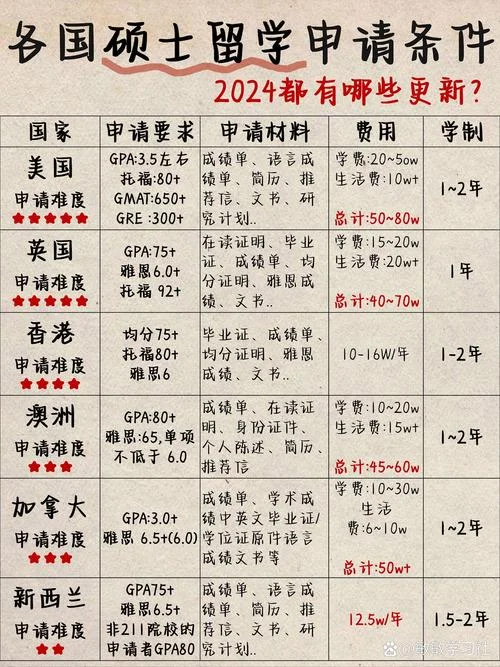 各国硕士留学申请条件
2024都有哪些更新?
国家 申请要求 申请材料 费用 学制
美国
申请难度
★★★★★
GPA:3.5左右
托福:80+
GMAT:650+
GRE :300+
成绩单、语言成
绩单、简历、推
荐信、文书、研
究计划..
学费:20~50w
生活费:10w+
总计:50~80w
1~2年
英国
申请难度
★★★★★
GPA:75+
雅思:6.0+
托福 92+
在读证明、毕业
证、成绩单、均
分证明、雅思成
绩、文书..
学费:15~20w
生活费:20w+
总计:40~70w
1年
香港
申请难度
★★★★
均分75+
托福80+
雅思6
毕业证、成绩单、
均分证明、雅思
成绩、文书..
10-16W/年
1-2年
澳洲
申请难度
★★★
GPA:80+
雅思:65,单项
不低于 6.0
成绩单、在读证
明、身份证件、
个人陈述、简历、
推荐信
学费:10~20w
生活费:15w+
总计:45~60w
1~2年
加拿大
申请难度
★★★
GPA:3.0+
雅思 6.5+(6.0)
成绩单、学术成
绩中英文毕业证/
学位证原件语言
成绩文书等
学费:10~30w
生活
费:6~10w
总计:50w+
1~2年
新西兰
申请难度
★★
GPA75+
雅思6.5+
非211院校的
申请者GPA80
成绩单、语言成
绩单、简历、推
荐信、文书、研
究计划..
12.5w/年
1.5-2年